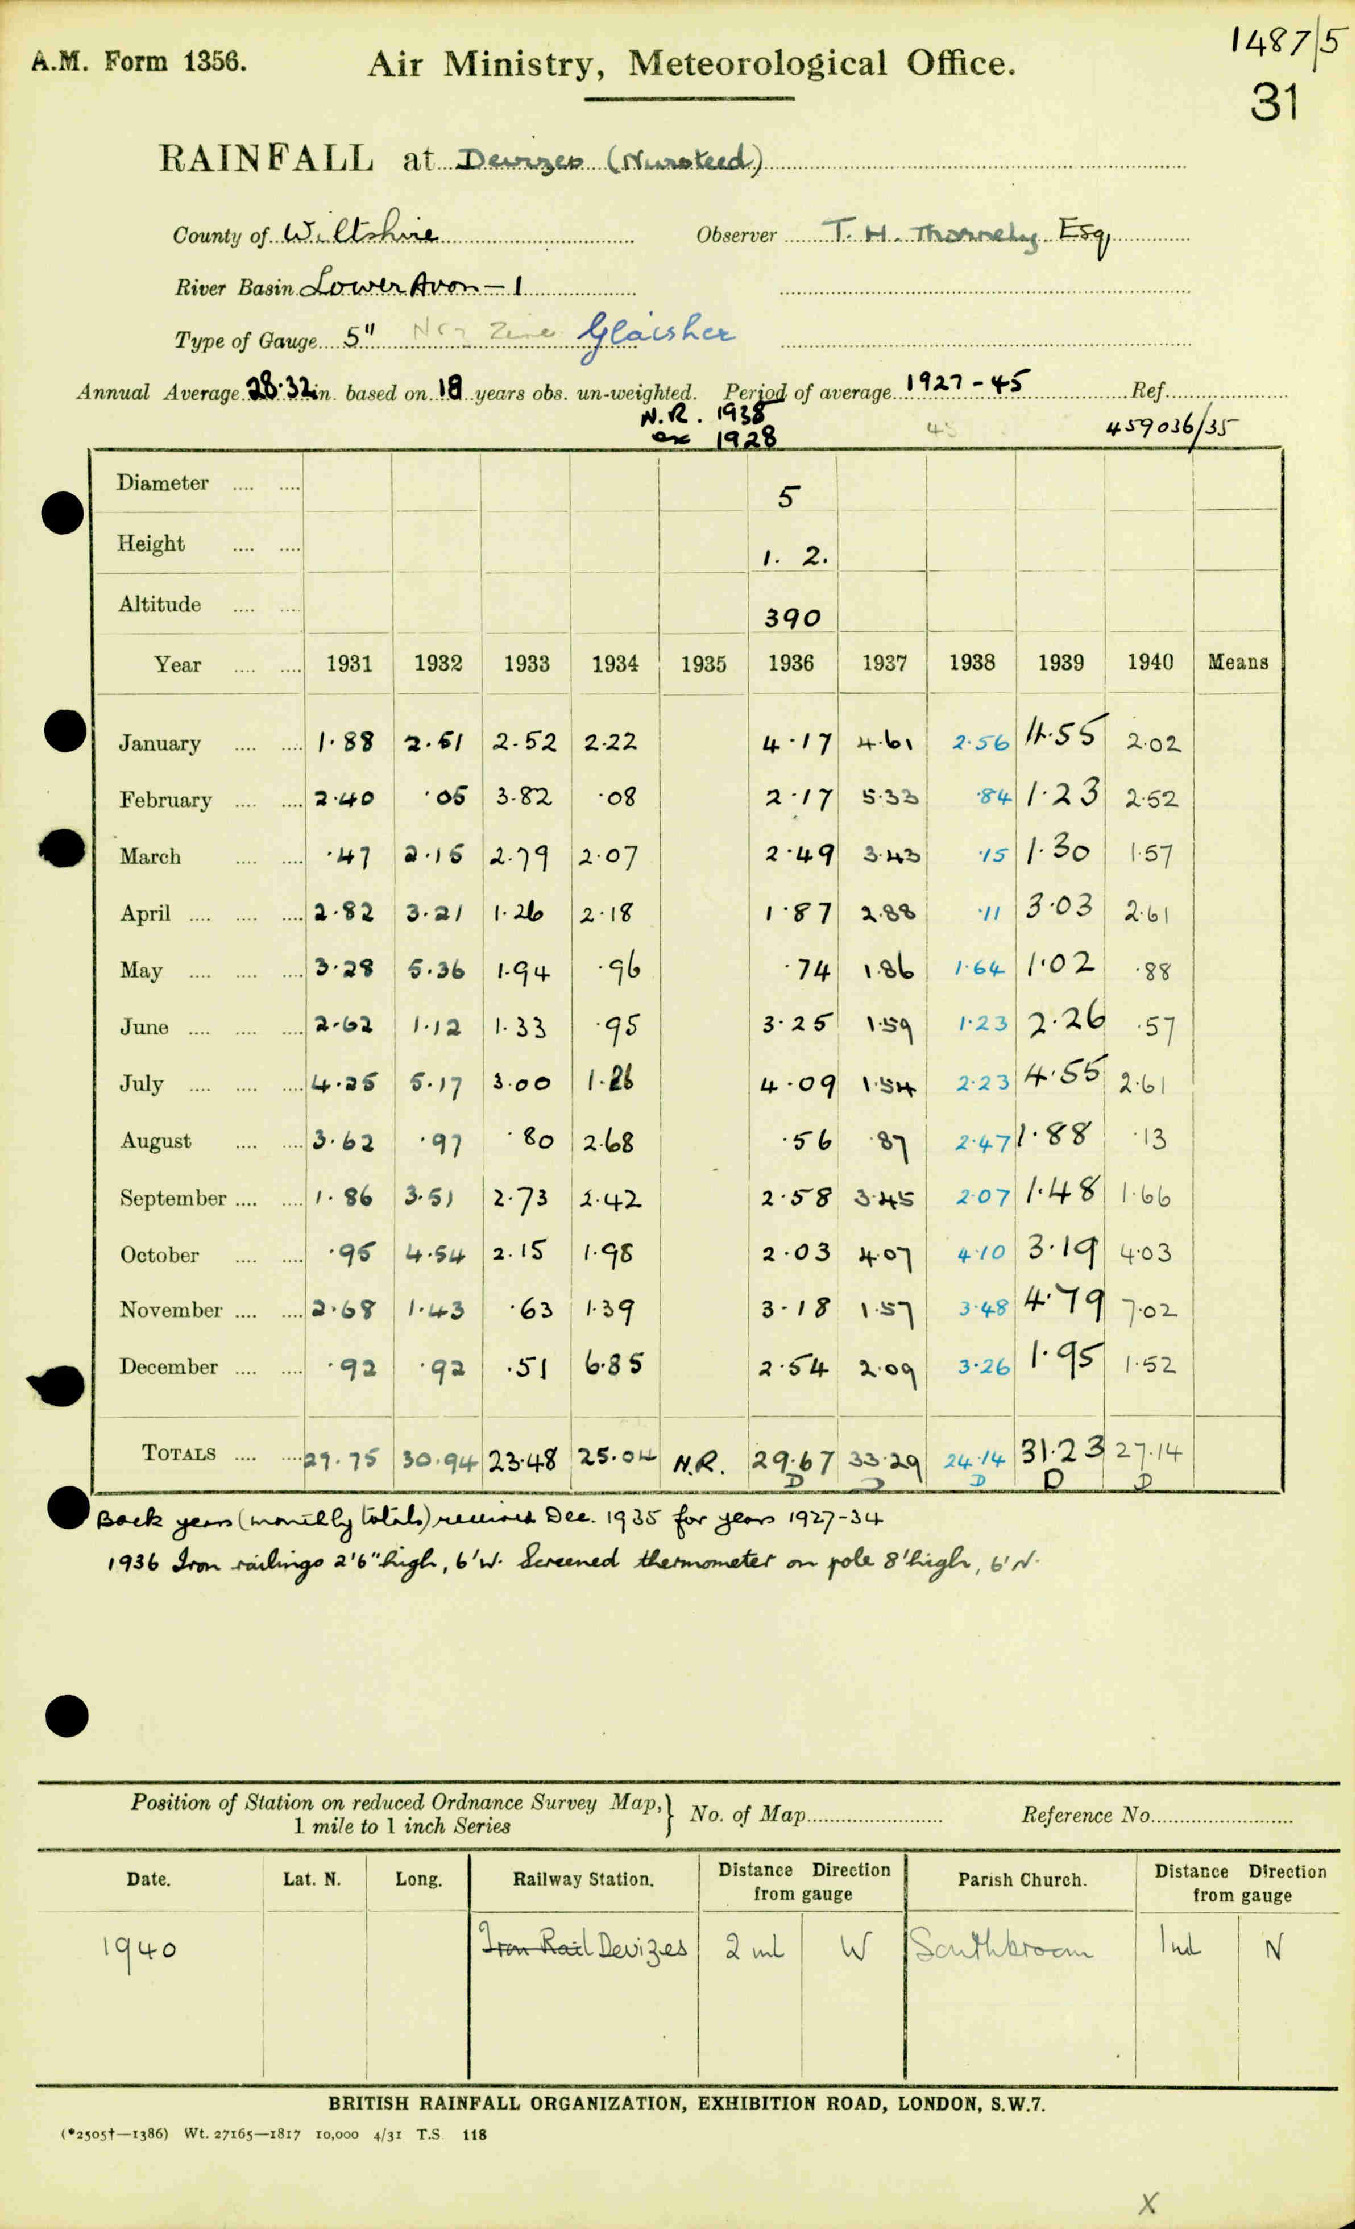 1487/5
A.M. Form 1356. Air Ministry, Meteorological Office.
31
RAINFALL at Devizes (Nursteed)
County of Wiltshire Observer T. H. Thornely Esq
River Basin Lower Avon - 1
Type of Gauge 5" Glaisher
Annual Average 28.32 in. based on 18 years obs. un-weighted. Period of average 1927-45 Ref.
N.R. 1935 45 459036/35
ex 1928
Diameter .... .... 5
Height .... .... 1. 2.
Altitude .... .... 390
Year .... .... 1931 1932 1933 1934 1935 1936 1937 1938 1939 1940 Means
January .... .... 1.88 2.51 2.52 2.22 4.17 4.61 2.56 4.55 2.02
February .... .... 2.40 .05 3.82 .08 2.17 5.33 .84 1.23 2.52
March .... .... .47 2.15 2.79 2.07 2.49 3.43 .15 1.30 1.57
April .... .... .... 2.82 3.21 1.26 2.18 1.87 2.88 .11 3.03 2.61
May .... .... .... 3.28 5.36 1.94 .96 .74 1.86 1.64 1.02 .88
June .... .... .... 2.62 1.12 1.33 .95 3.25 1.59 1.23 2.26 .57
July .... .... .... 4.25 5.17 3.00 1.26 4.09 1.54 2.23 4.55 2.61
August .... .... 3.62 .97 .80 2.68 .56 .87 2.47 1.88 .13
September .... .... 1.86 3.51 2.73 2.42 2.58 3.45 2.07 1.48 1.66
October .... .... .95 4.54 2.15 1.98 2.03 4.07 4.10 3.19 4.03
November .... .... 2.68 1.43 .63 1.39 3.18 1.57 3.48 4.79 7.02
December .... .... .92 .92 .51 6.85 2.54 2.09 3.26 1.95 1.52
TOTALS .... .... 27.75 30.94 23.48 25.04 N.R. 29.67 33.29 24.14 31.23 27.14
D D D D D
Back years (monthly totals) received Dec. 1935 for years 1927-34
1936 Iron railings 2'6" high, 6'W. Screened thermometer on pole 8' high, 6'N.
Position of Station on reduced Ordnance Survey Map, } No. of Map Reference No.
1 mile to 1 inch Series
Date. Lat. N. Long. Railway Station. Distance Direction from gauge Parish Church. Distance Direction from gauge
1940 Iron Rail Devizes 2 ml W Southbroom 1 ml N
BRITISH RAINFALL ORGANIZATION, EXHIBITION ROAD, LONDON, S.W.7.
(*2505†—1386) Wt. 27165—1817 10,000 4/31 T.S. 118
X